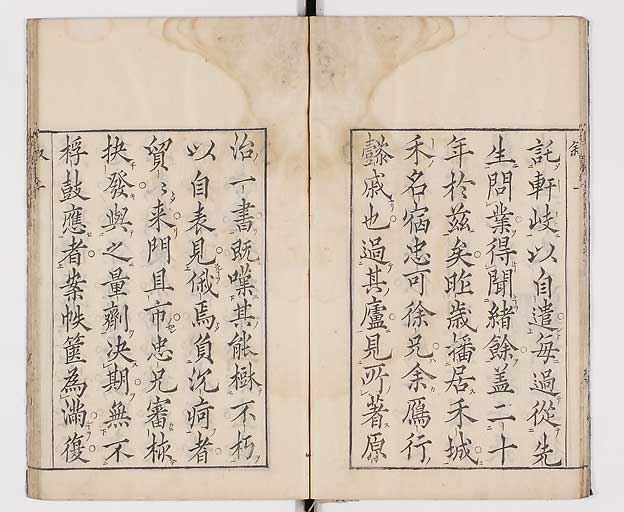 託軒岐以自遣毎過從先
生問業得聞緒餘盖二十
年於玆矣昨歳播居禾城
禾名宿忠可徐兄余鴈行
懿戚也過其廬見所著原
治一書既嘆其能樹不朽
以自表見俄焉負沉痾者
貿〻来門且市忠兄審
抉發與之量劑決期無不
桴鼓應者案帙篋為滿復